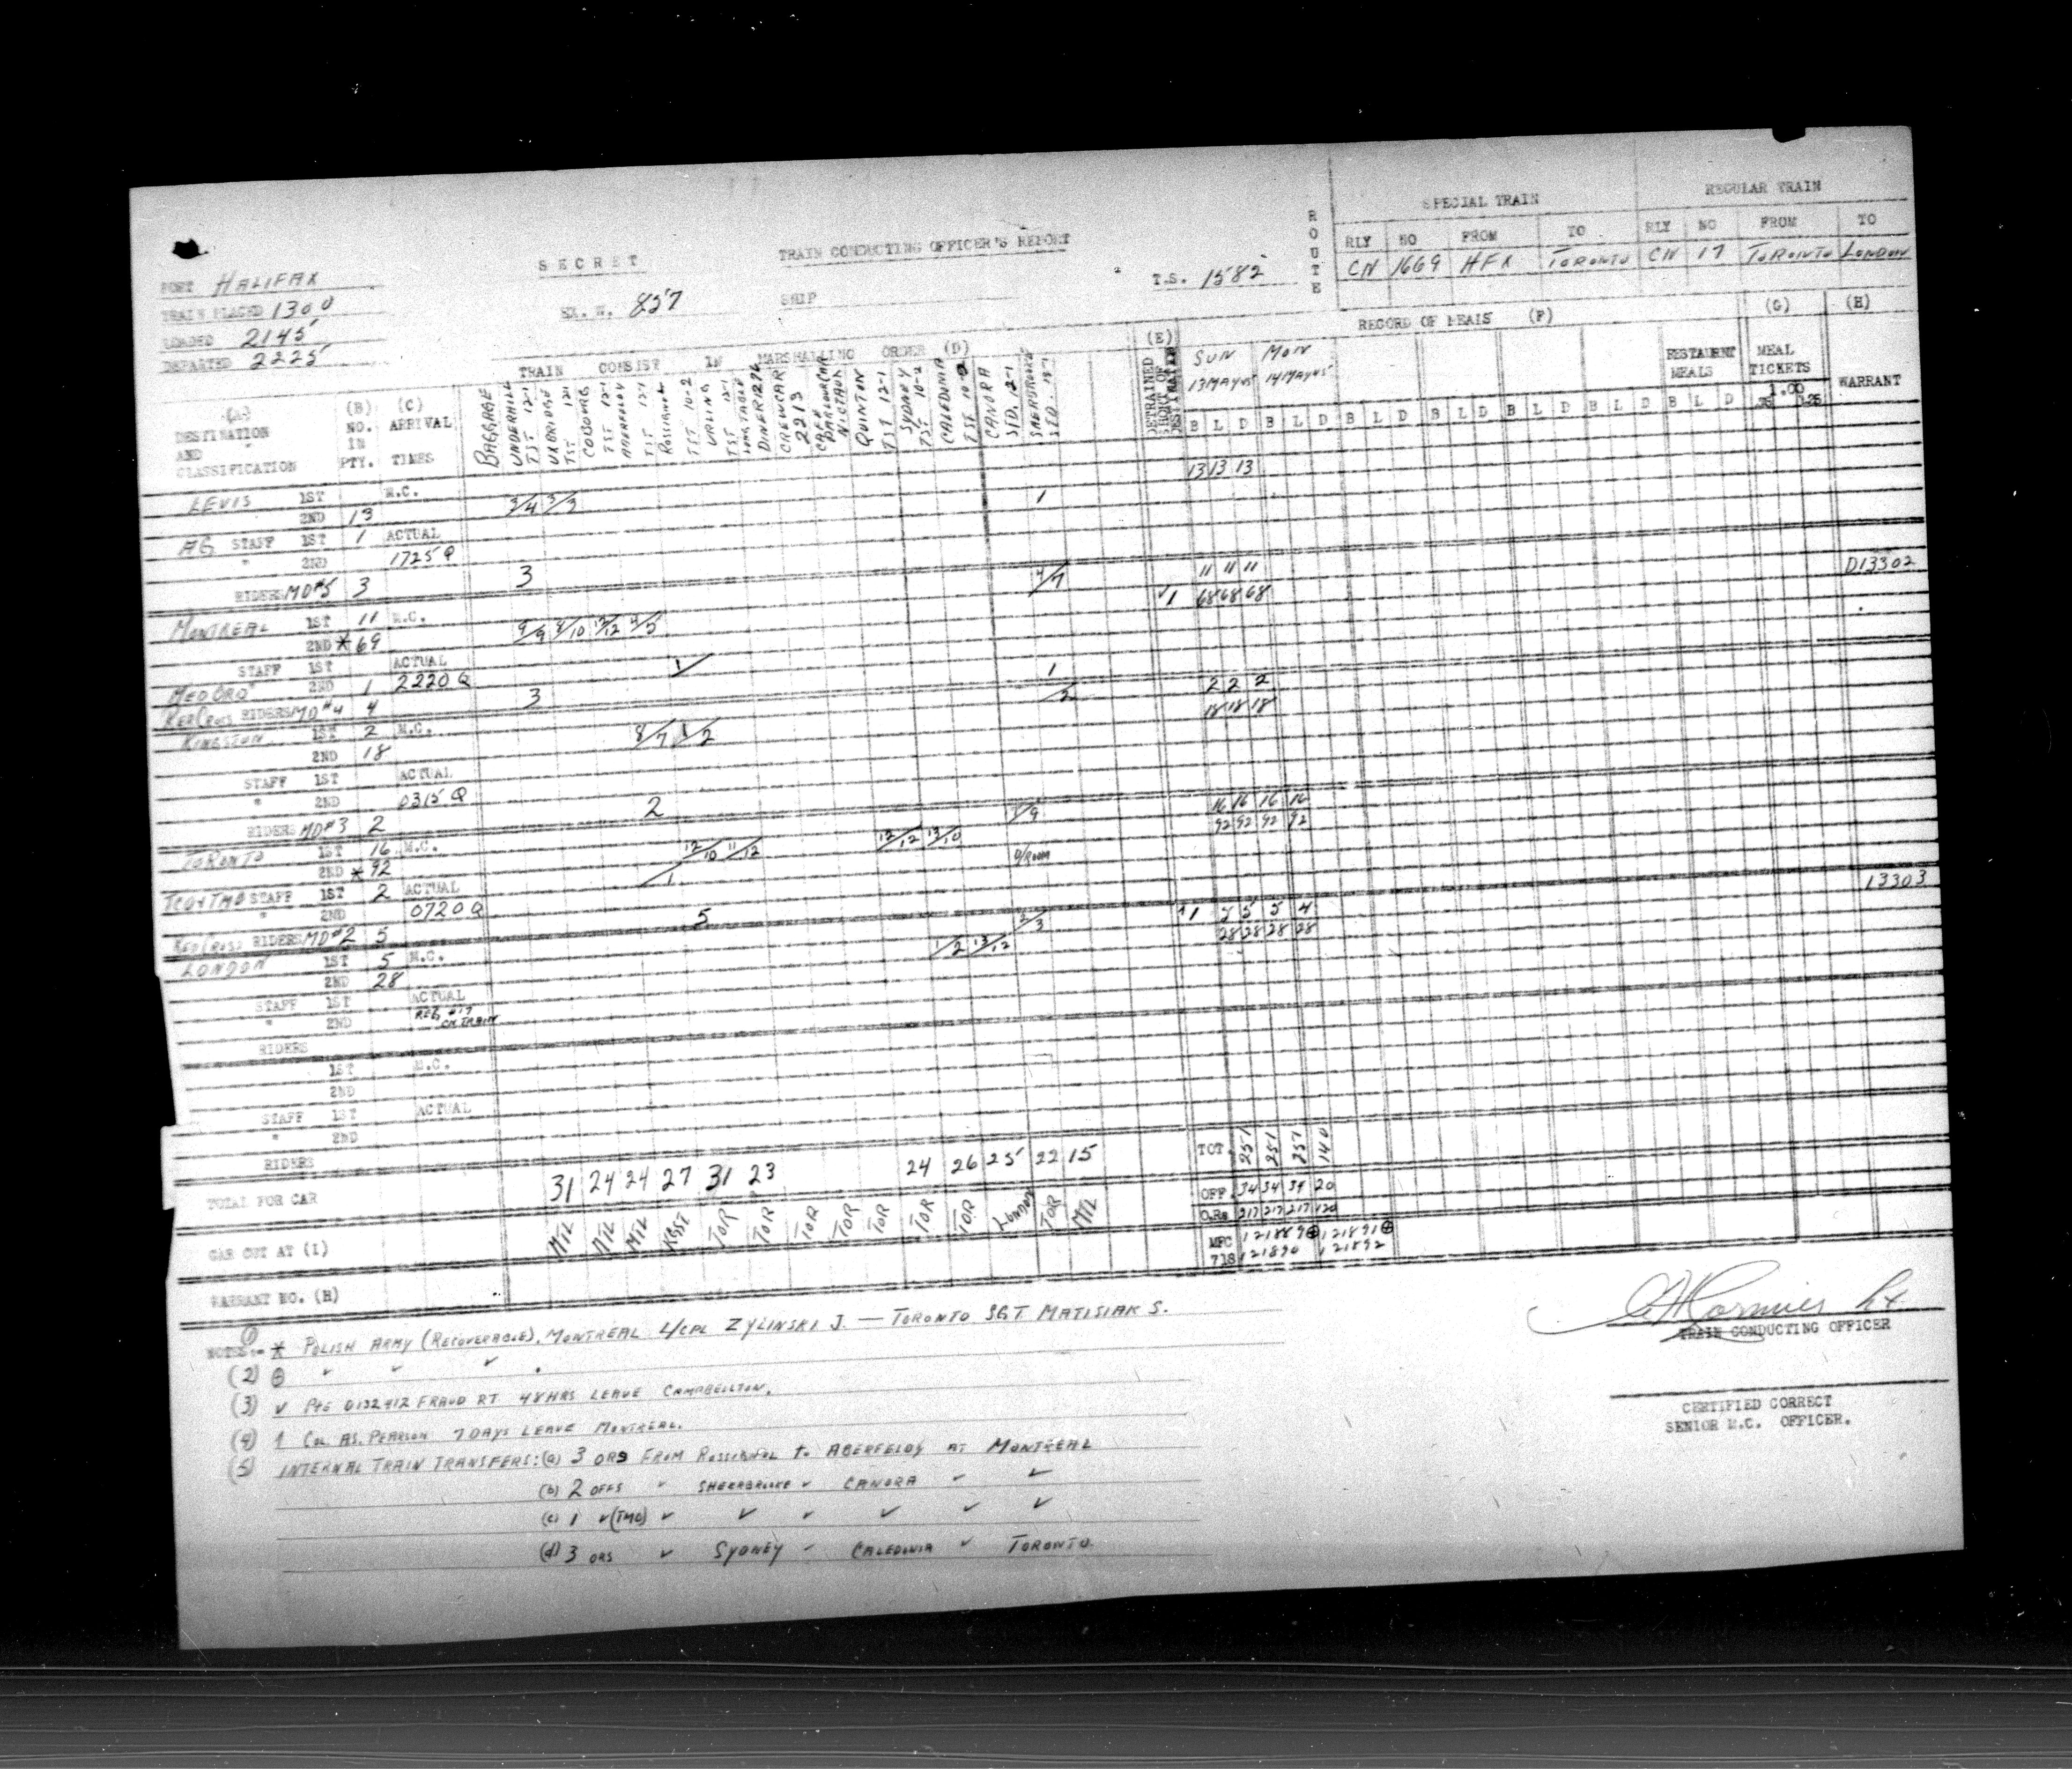 SPECIAL TRAIN REGULAR TRAIN
ROUTE
RLY NO FROM TO RLY NO FROM TO
CN 1669 HFX TORONTO CN 17 TORONTO LONDON
SECRET TRAIN CONDUCTING OFFICER'S REPORT
PORT HALIFAX
TRAIN PLACED 1300
LOADED 2145
DEPARTED 2225
EX. W. 857 SHIP T.S. 1582
TRAIN CONSIST IN MARSHALLING ORDER (D)
(E) RECORD OF MEALS (F) (G) (H)
SUN MON RESTAURNT MEAL
13 MAY 45 14 MAY 45 MEALS TICKETS
1.00 WARRANT
(A) (B) (C)
DESTINATION NO. ARRIVAL
AND IN
CLASSIFICATION PTY. TIMES
BAGGAGE
UNDERHILL TST 12-1
UXBRIDGE TST 12-1
COBOURG TST 12-1
ABERFELDY TST 12-1
TST 10-2
URLING TST 12-1
DINER 1296
CREWCAR 2213
CAFE PARLOUR CAR NICTAUX
QUINTON TST 12-1
SYDNEY TST 10-2
CALEDONIA TST 10-2
CANORA STD. 12-1
SHERBROOKE STD.
DETRAINED SHORT OF DESTINATION
B L D B L D B L D B L D B L D B L D B L D
LEVIS 1ST M.C. 13 13 13
2ND 13 3/4 3/3
AG STAFF 1ST 1 ACTUAL 1
" 2ND 1725Q
RIDERS MD#5 3 3
MONTREAL 1ST 11 M.C. 4/7 11 11 11 D13302
2ND * 69 9/9 8/10 12/12 4/5 √1 68 68 68
STAFF 1ST ACTUAL
MED ORD " 2ND 1 2220Q 1
RED CROSS RIDERS MD#4 4 3 1
KINGSTON 1ST 2 M.C. 2 2 2 2
2ND 18 8/7 1/2 18 18 18
STAFF 1ST ACTUAL
" 2ND 0315Q
RIDERS MD#3 2 2
TORONTO 1ST 16 M.C. 7/9 16 16 16 16
2ND * 92 12/10 11/12 12/12 13/10 92 92 92 92
TCO & TMO STAFF 1ST 2 ACTUAL D/ROOM
" 2ND 0720Q 1
RED CROSS RIDERS MD#2 5 5
LONDON 1ST 5 M.C. 2/3 1 5 5 5 4 13303
2ND 28 1/2 13/12 28 28 28 28
STAFF 1ST ACTUAL
" 2ND REG #17 CN TRAIN
RIDERS
1ST M.C.
2ND
STAFF 1ST ACTUAL
" 2ND
RIDERS
TOTAL FOR CAR 31 24 24 27 31 23 24 26 25 22 15
TOT 251 251 251 140
OFF 34 34 34 20
O.Rs 217 217 217 120
CAR CUT AT (I) MTL MTL MTL KGST TOR TOR TOR TOR TOR TOR TOR LONDON TOR MTL
MFC 121889⊕ 121891⊕
718 121890 121892
WARRANT NO. (H)
NOTES:- (1) * POLISH ARMY (RECOVERABLE). MONTREAL L/CPL ZYLINSKI J. — TORONTO SGT. MATISIAK S.
(2) ⊕ " " " .
(3) √ PTE D132412 FRAUD RT 48 HRS LEAVE CAMPBELLTON.
(4) 1 COL AS. PEARSON 7 DAYS LEAVE MONTREAL.
(5) INTERNAL TRAIN TRANSFERS: (a) 3 ORS FROM ROSSIGNOL TO ABERFELDY AT MONTREAL
(b) 2 OFFS " SHERBROOKE " CANORA " "
(c) 1 " (TMO) " " " " " "
(d) 3 ORS " SYDNEY " CALEDONIA " TORONTO.
TRAIN CONDUCTING OFFICER
CERTIFIED CORRECT
SENIOR M.C. OFFICER.